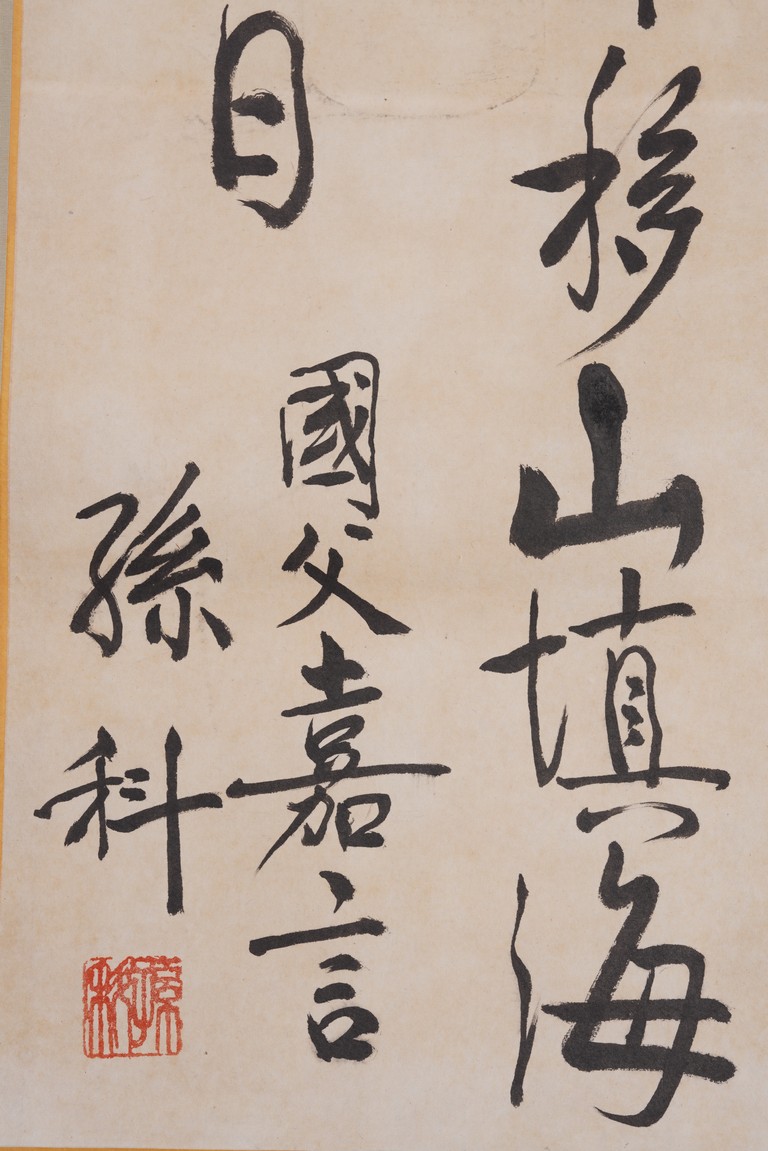 移山填海
日
國父嘉言
孫科